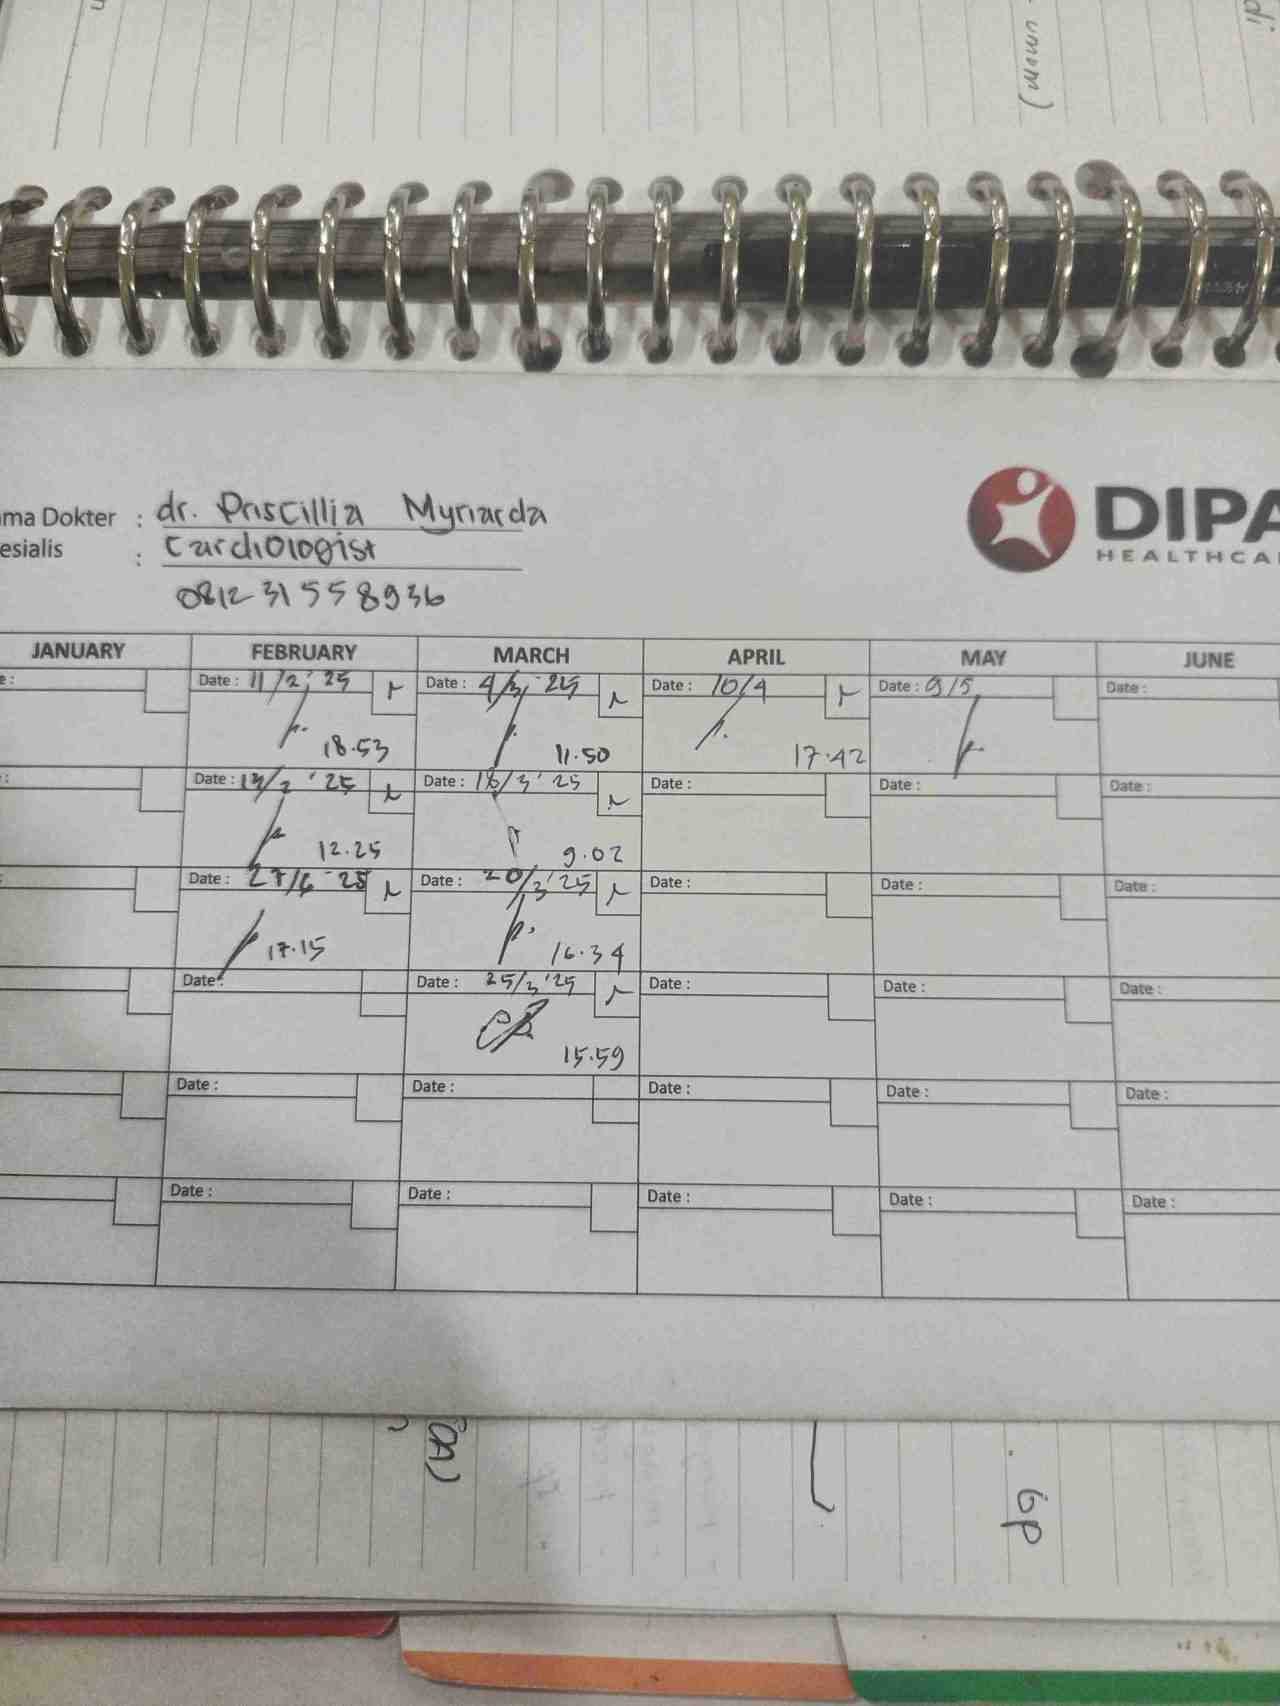 mom)
di
ama Dokter : dr. Priscillia Myriarda
esialis : Cardiologist
081231558936
DIPA
HEALTHCA
JANUARY FEBRUARY MARCH APRIL MAY JUNE
e: Date : 11/2 '25 Date : 4/3 '25 Date : 10/4 Date : 9/5 Date :
18.53 11.50 17.42
: Date : 13/2 '25 Date : 18/3 '25 Date : Date : Date :
12.25 9.02
: Date : 27/6 '25 Date : 20/3 '25 Date : Date : Date :
17.15 16.34
Date : Date : 25/3 '25 Date : Date : Date :
15.59
Date : Date : Date : Date : Date :
Date : Date : Date : Date : Date :
gp